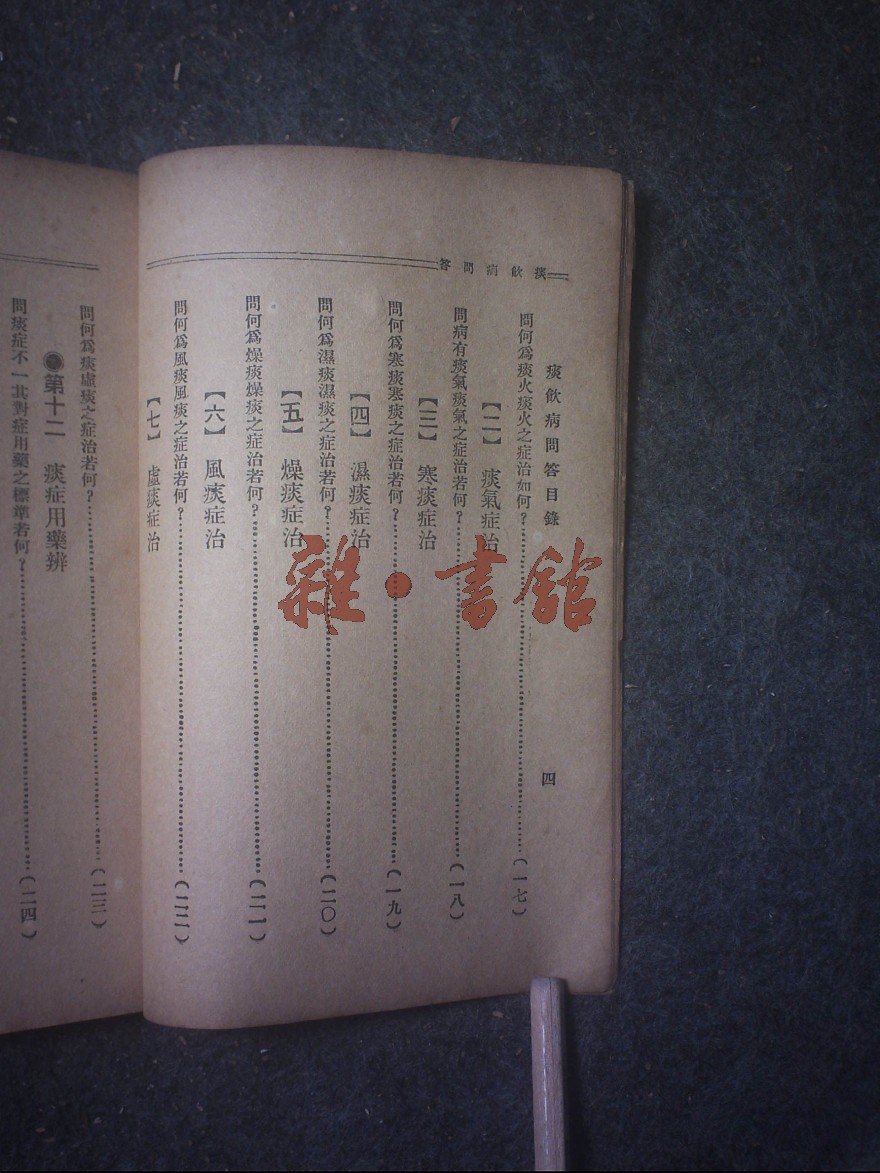 痰飲病問答
痰飲病問答目錄 四
問何爲痰火痰火之症治如何?……(一七)
【二】 痰氣症治
問病有痰氣痰氣之症治若何?……(一八)
【三】 寒痰症治
問何爲寒痰寒痰之症治若何?……(一九)
【四】 濕痰症治
問何爲濕痰濕痰之症治若何?……(二〇)
【五】 燥痰症治
問何爲燥痰燥痰之症治若何?……(二一)
【六】 風痰症治
問何爲風痰風痰之症治若何?……(二二)
【七】 虛痰症治
問何爲痰虛痰之症治若何?……(二三)
●第十二 痰症用藥辨
問痰症不一其對症用藥之標準若何?……(二四)
雜·書館